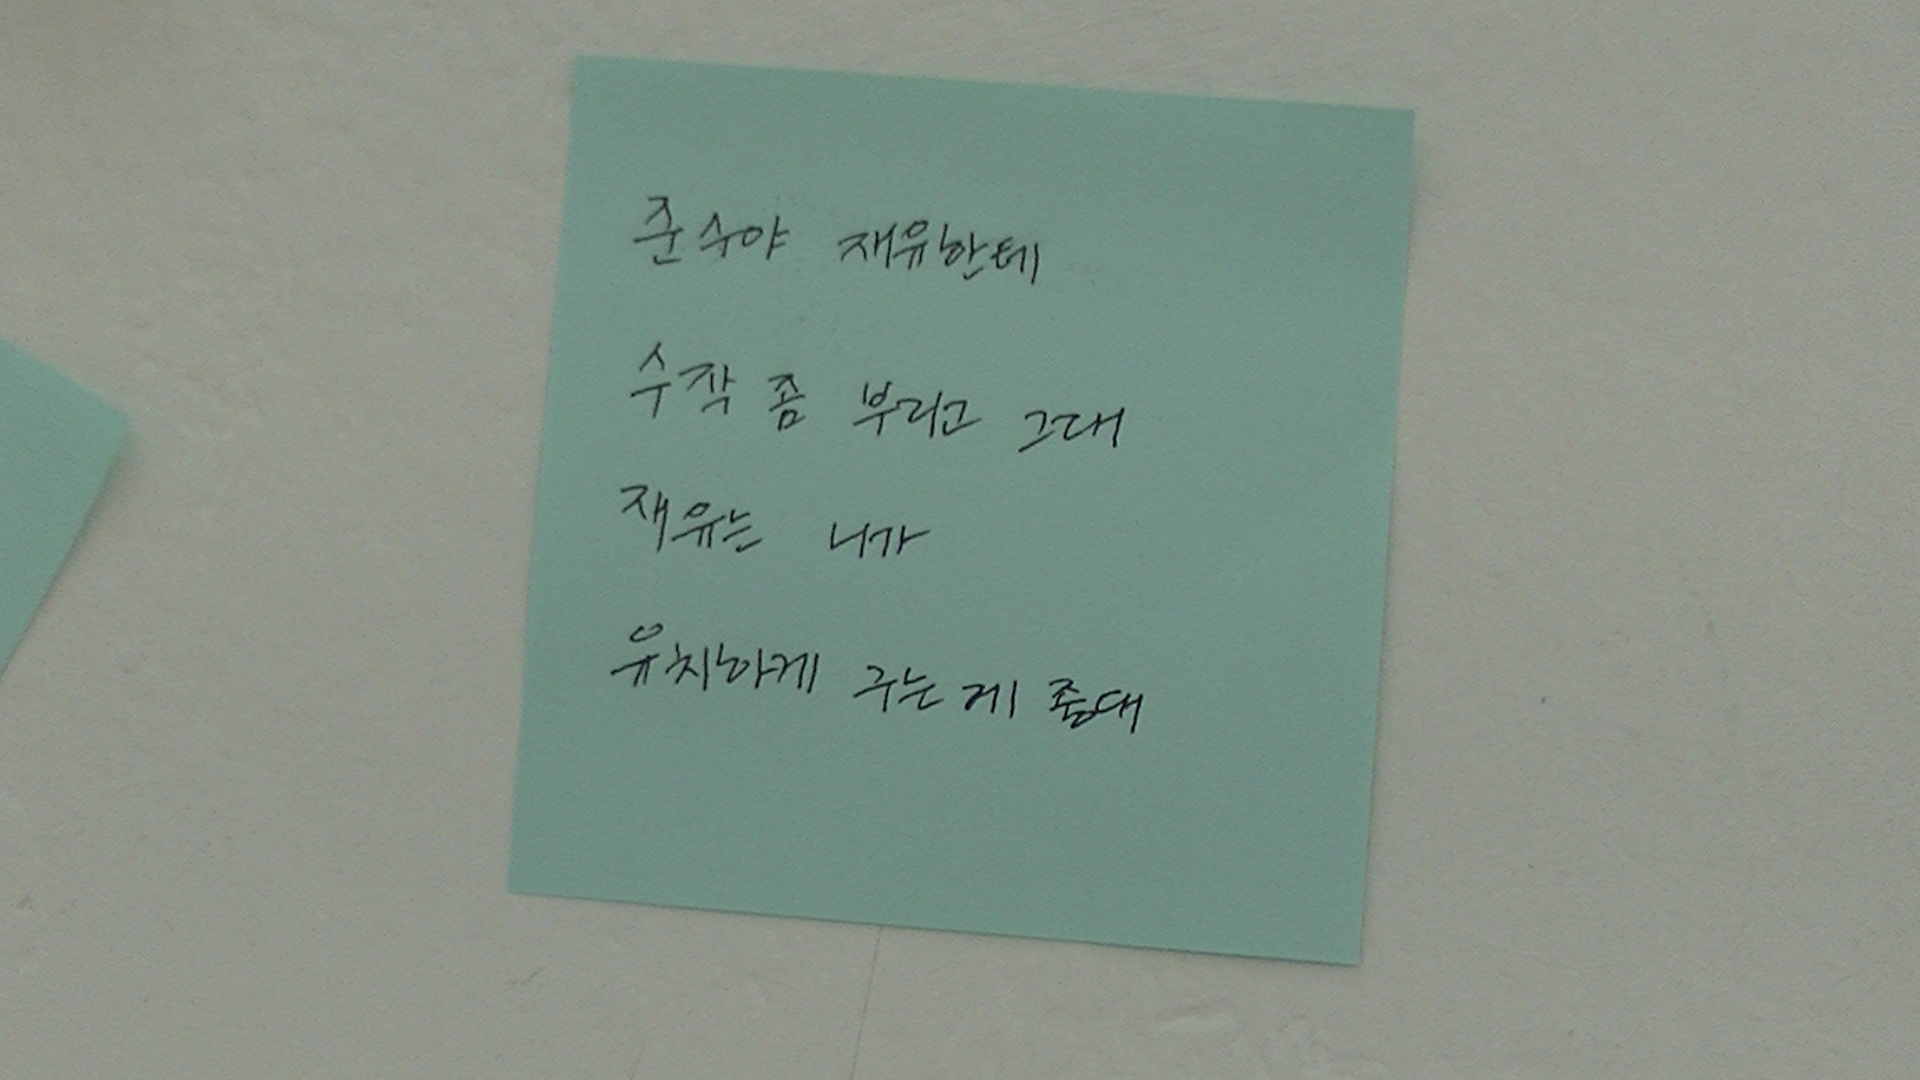 준수야 재유한테
수작 좀 부리고 그대
재유는 니가
유치하게 구는게 좋대